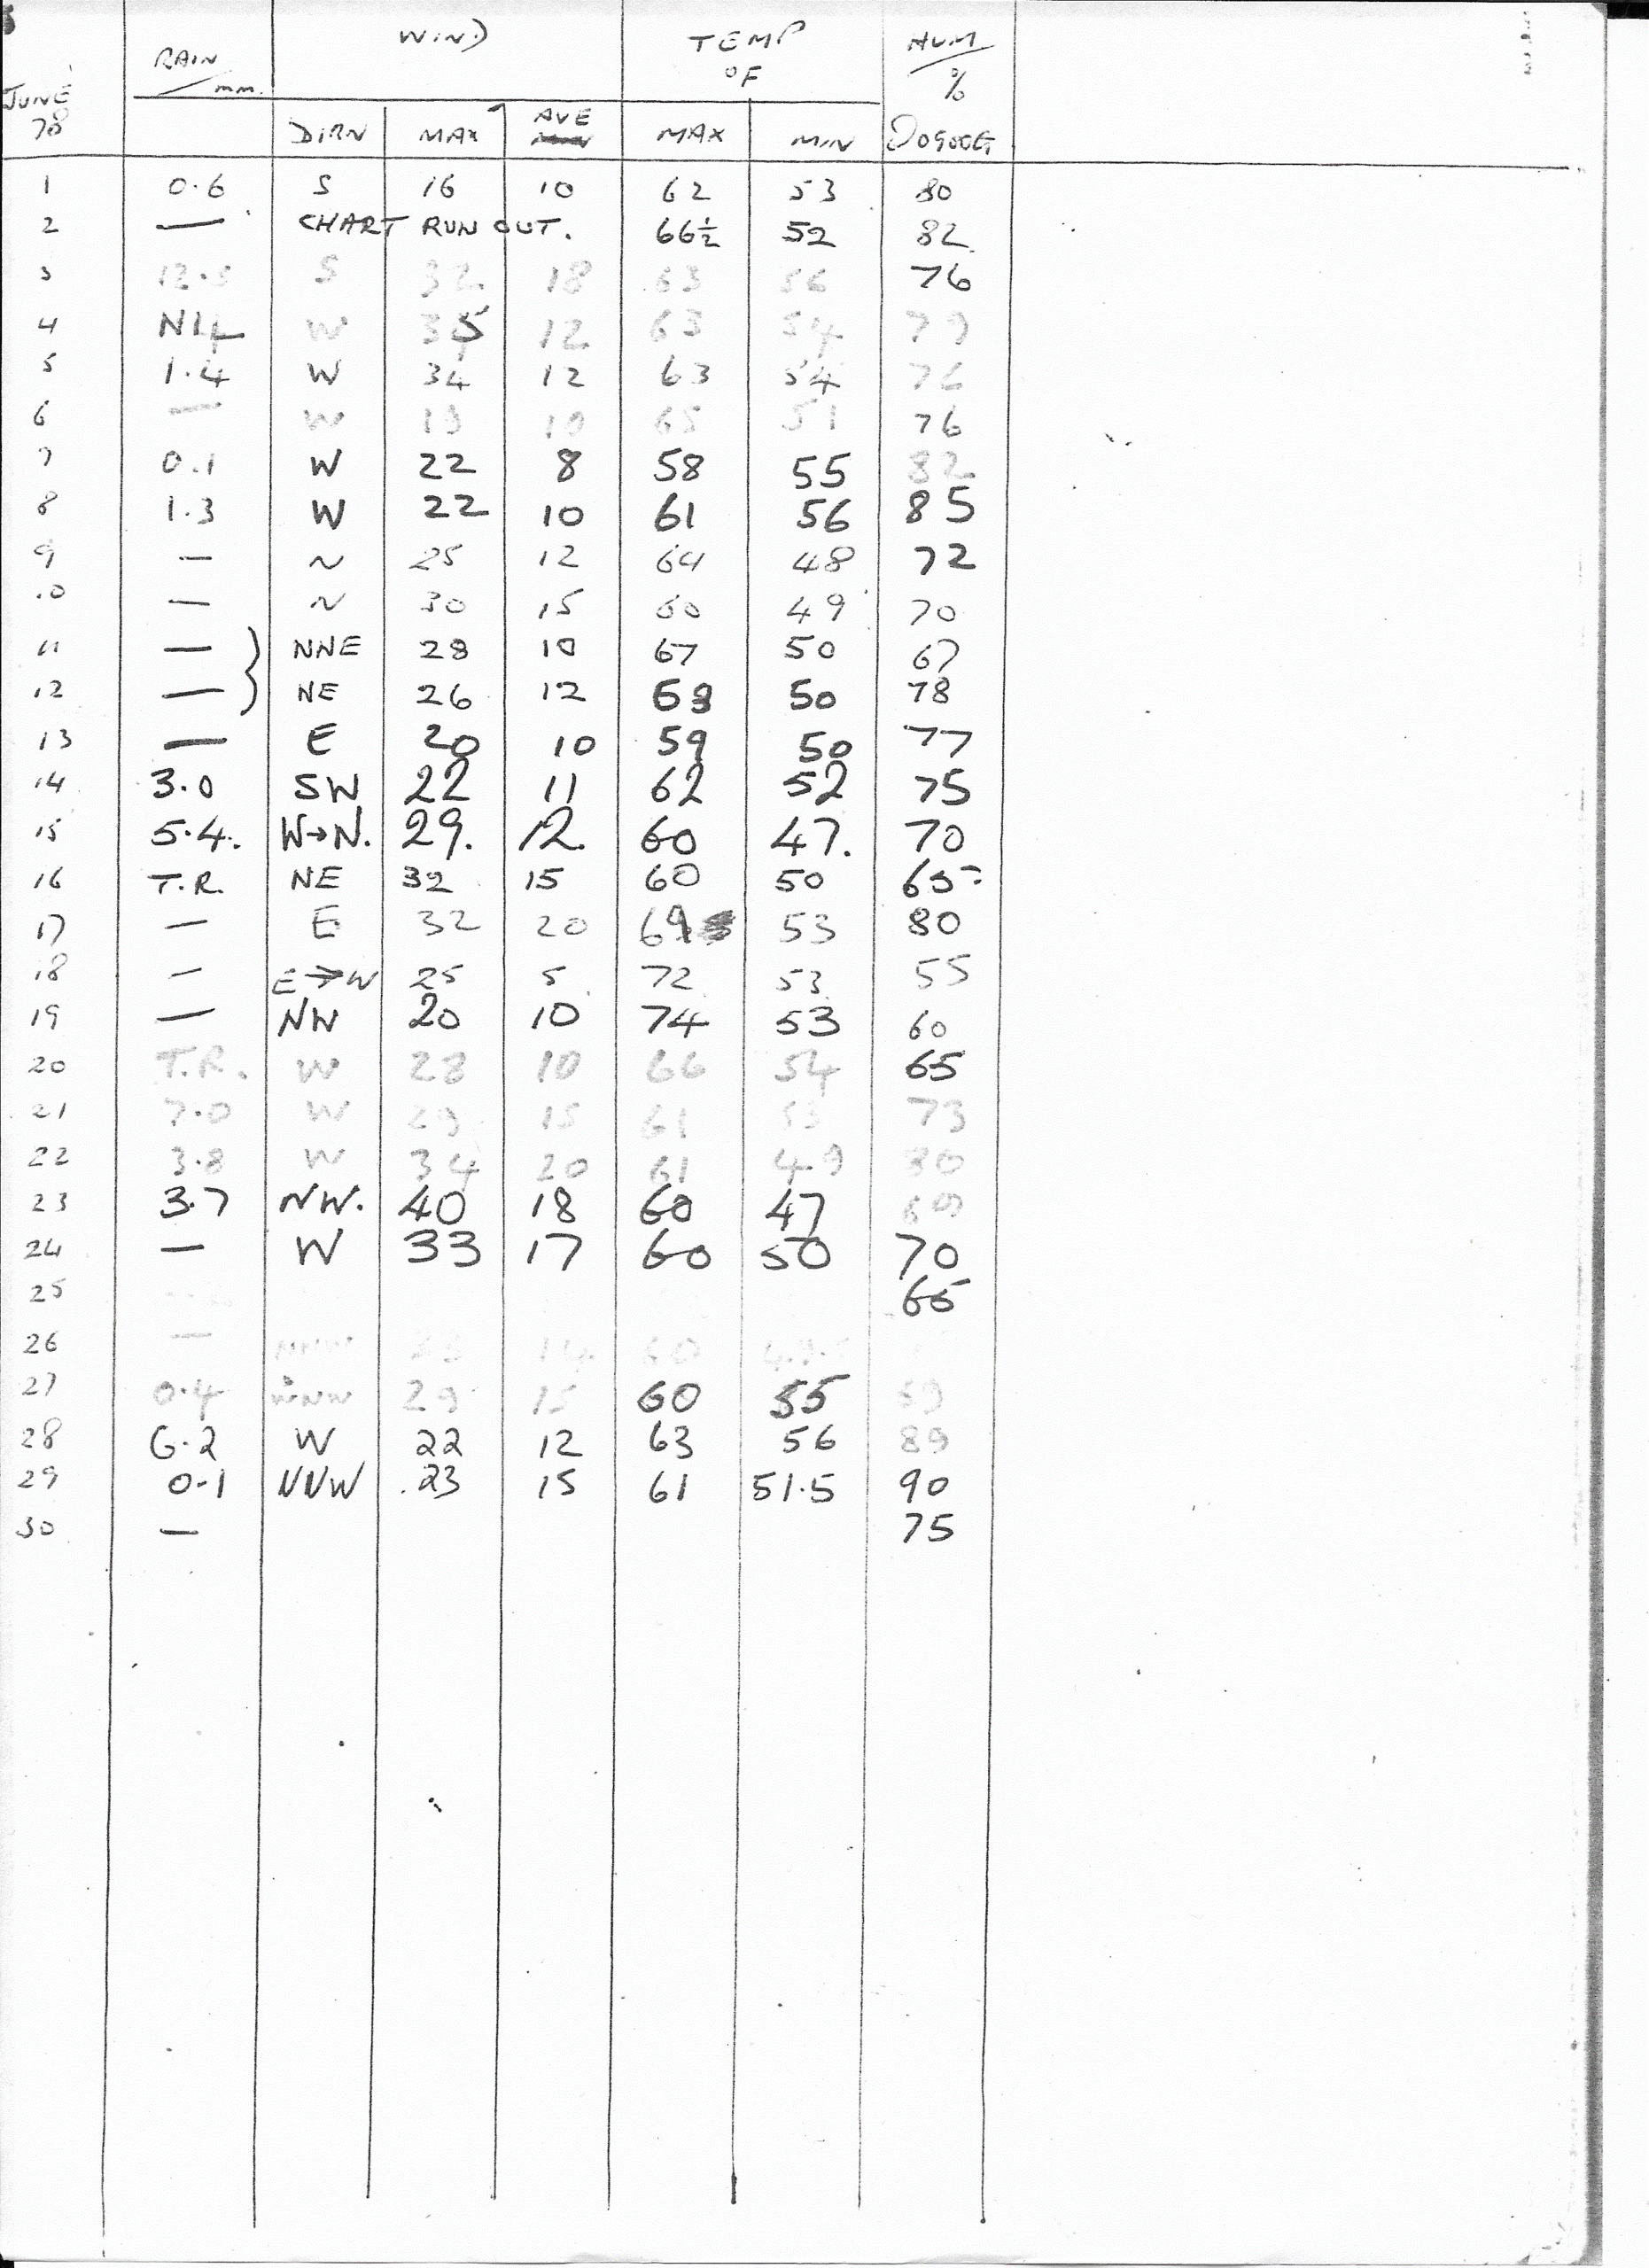 RAIN WIND TEMP HUM
JUNE mm. °F %
78 DIRN MAX AVE MAX MIN @0900G
1 0.6 S 16 10 62 53 80
2 — CHART RUN OUT. 66½ 52 82
3 S 32 18 63 56 76
4 NIL W 35 12 63 54 79
5 1.4 W 34 12 63 54 76
6 — W 19 10 65 51 76
7 0.1 W 22 8 58 55 82
8 1.3 W 22 10 61 56 85
9 — N 25 12 64 48 72
10 — N 30 15 60 49 70
11 — NNE 28 10 67 50 67
12 — NE 26 12 50 78
13 — E 20 10 59 50 77
14 3.0 SW 22 11 62 52 75
15 5.4. W→N. 29. 12. 60 47. 70
16 T.R. NE 32 15 60 50 65
17 — E 32 20 69 53 80
18 — E→W 25 5 72 53 55
19 — NW 20 10 74 53 60
20 T.R. W 28 10 66 54 65
21 7.0 W 29 15 61 53 73
22 3.8 W 34 20 61 49 80
23 3.7 NW. 40 18 60 47
24 — W 33 17 60 50 70
25 66
26 — 14 60
27 0.4 WNW 29 15 60 55 69
28 6.2 W 22 12 63 56 89
29 0.1 NNW 23 15 61 51.5 90
30 — 75